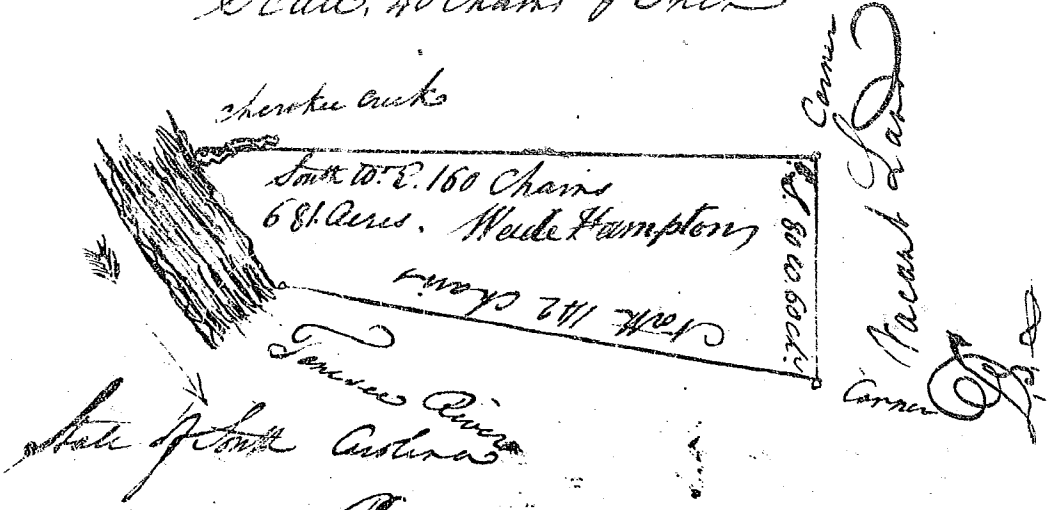 Scale, 40 Chains & Inch
Cherokee Creek
South 10° E. 160 Chains
681 Acres. Wade Hamptons
S. 80 W. 60 chs
North 142 Chains
Corner
Vacant Land
Corner
Toneree River
State of South Carolina